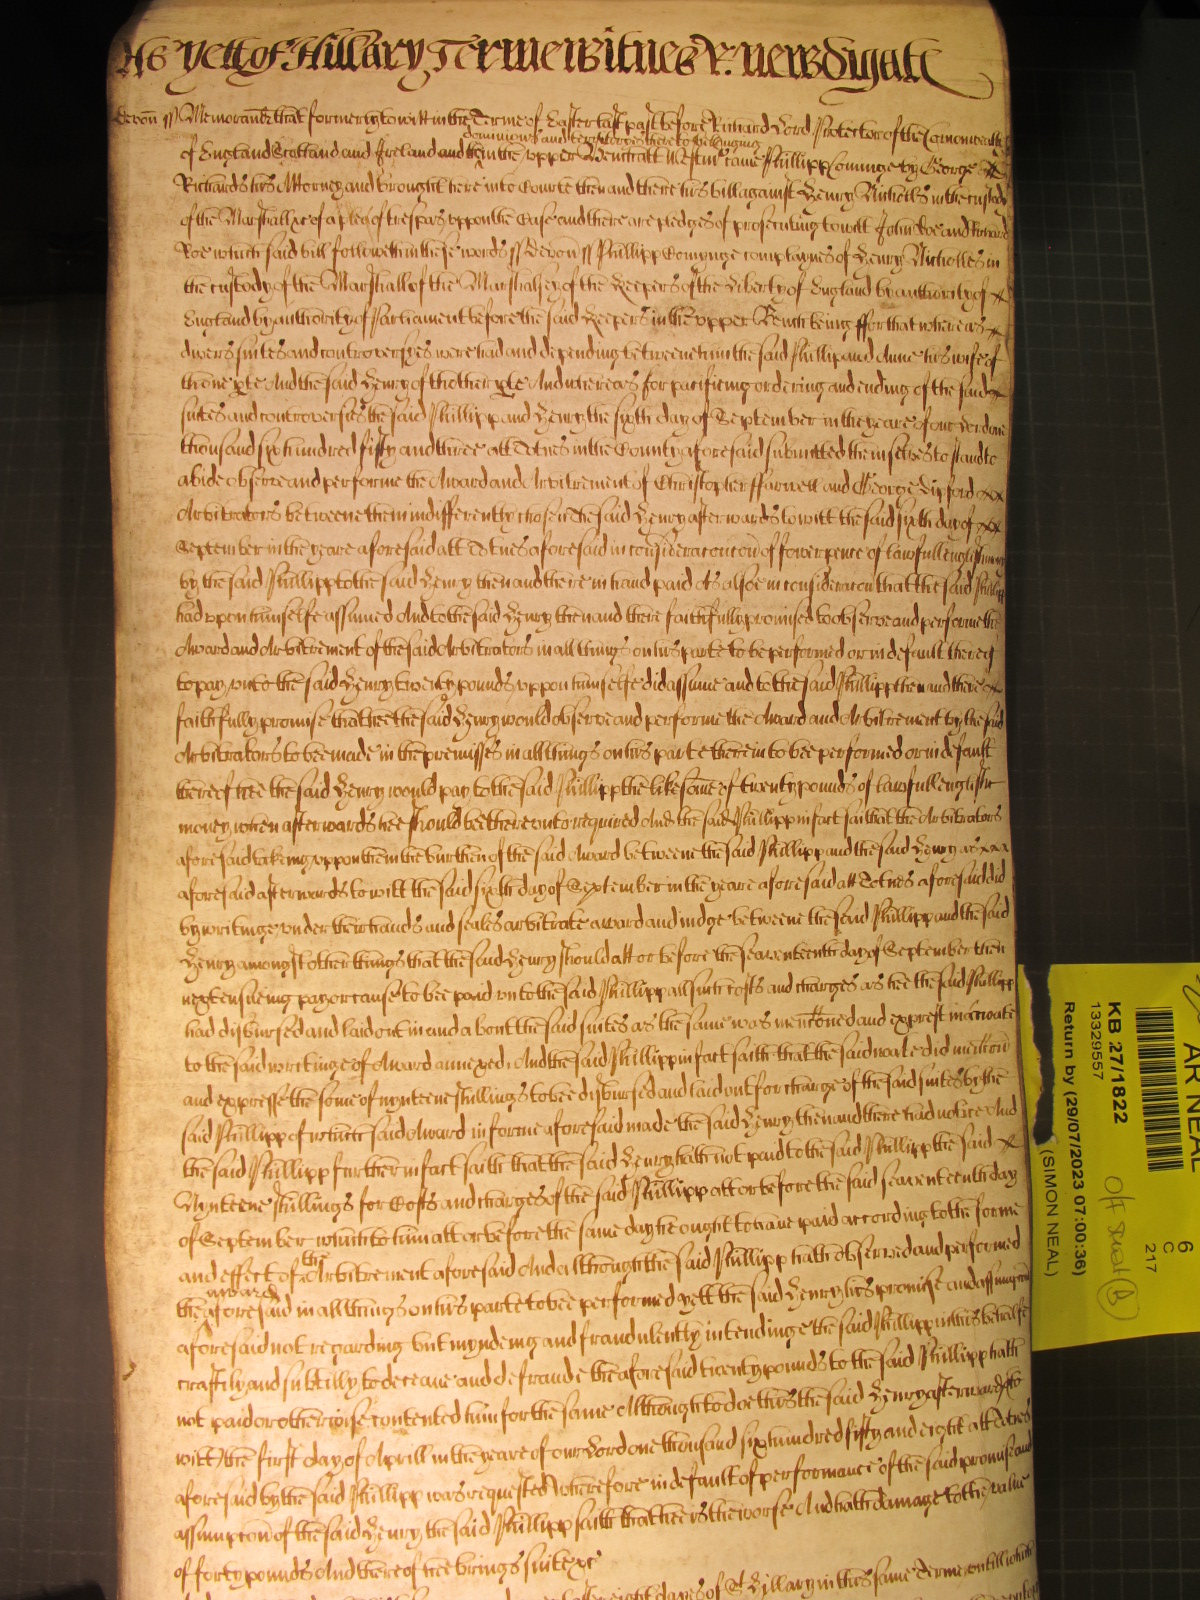 As yett of Hillary Terme witnes R: Newdigate
Devon ss Memorand that formerly to witt in the Terme of Easter last past before Richard Lord Protector of the Comonwealth
dominions and territories thereto belonging
of England Scotland and Ireland and the in the upper Bench att Westmr came Phillipp Cominge by George
Richards his Attorney and brought here into Courte then and there his bill against Henry Nicholls in the custody
of the Marshall &c of a plea of trespas uppon the Case and there are pledges of prosecuting to witt John Doe and Richard
Roe which said bill followeth in these words ss Devon ss Phillipp Comynge complaynes of Henry Nicholles in
the custody of the Marshall of the Marshalsey of the Keepers of the Liberty of England by authority of
England by authority of Parliament before the said Keepers in the upper Bench being ffor that whereas
divers suites and controversyes were had and depending betweene him the said Phillip and Anne his wife of
thone pte And the said Henry of thother pte And whereas for pacifieing ordering and ending of the said
suites and controversies the said Phillipp and Henry the sixth day of September in the yeare of our Lord one
thousand six hundred fifty and three att Totnes in the County aforesaid submitted themselves to stand to
abide observe and performe the Award and Arbitrement of Christopher ffarwell and George Lipford
Arbitrators betweene them indifferently chosen the said Henry afterwards to witt the said sixth day of
September in the yeare aforesaid att Totnes aforesaid in consideracon of fower pence of lawfull english money
by the said Phillipp to the said Henry then and there in hand paid As alsoe in consideracon that the said Phillipp
had upon himselfe assumed And to the said Henry then and there faithfully promised to observe and performe the
Award and Arbitrement of the said Arbitrators in all things on his parte to be performed or in default thereof
to pay unto the said Henry twenty pounds uppon himselfe did assume and to the said Phillipp then and there
faithfully promise that hee the said Henry would observe and performe the Award and Arbitrement by the said
Arbitrators to bee made in the premisses in all things on his parte therein to bee performed or in default
thereof hee the said Henry would pay to the said Phillipp the like some of twenty pounds of lawfull english
money when afterwards hee should bee thereunto required And the said Phillipp in fact saith that the Arbitrators
aforesaid takeing uppon them the burthen of the said Award betweene the said Phillipp and the said Henry as
aforesaid afterwards to witt the said sixth day of September in the yeare aforesaid att Totnes aforesaid did
by writinge under their hands and seales arbitrate award and iudge betweene the said Phillipp and the said
Henry amongst other things that the said Henry should att or before the seaventeenth day of September then
next ensueing pay or cause to bee paid unto the said Phillipp all such costs and charges as hee the said Phillipp
had disbursed and laid out in and about the said suites as the same was mentioned and exprest in a noate
to the said writinge of Award annexed And the said Phillipp in fact saith that the said noate did mention
and expresse the some of nynteene shillings to bee disbursed and laid out for charge of the said suites by the
said Phillipp of which said Award in forme aforesaid made the said Henry then and there had notice And
the said Phillipp further in fact saith that the said Henry hath not paid to the said Phillipp the said
Nynteene shillings for Costs and charges of the said Phillipp att or before the said seaventeenth day
of September which to him att or before the same day he ought to have paid according to the forme
and effect of the Arbitrement aforesaid And although the said Phillipp hath observed and performed
award
the aforesaid in all things on his parte to bee performed yett the said Henry his promise and assumption
aforesaid not regarding but myndeing and fraudulently intendinge the said Phillipp in this behalfe
craftily and subtilly to deceave and defraude the aforesaid twenty pounds to the said Phillipp hath
not paid or otherwise contented him for the same Although to doe this the said Henry afterwards to
witt the first day of Aprill in the yeare of our Lord one thousand six hundred fifty and eight att Totnes
aforesaid by the said Phillipp was requested Wherefore in default of performance of the said promise and
assumpcon of the said Henry the said Phillipp saith that hee is the worse And hath damage to the value
of forty pounds And thereof hee brings suite &c
eight dayes of St Hillary in this same Terme untill which
AR NEAL
6
C
217
KB 27/1822
13329557
Return by (29/07/2023 07:00:36)
(SIMON NEAL)
Off site (B)